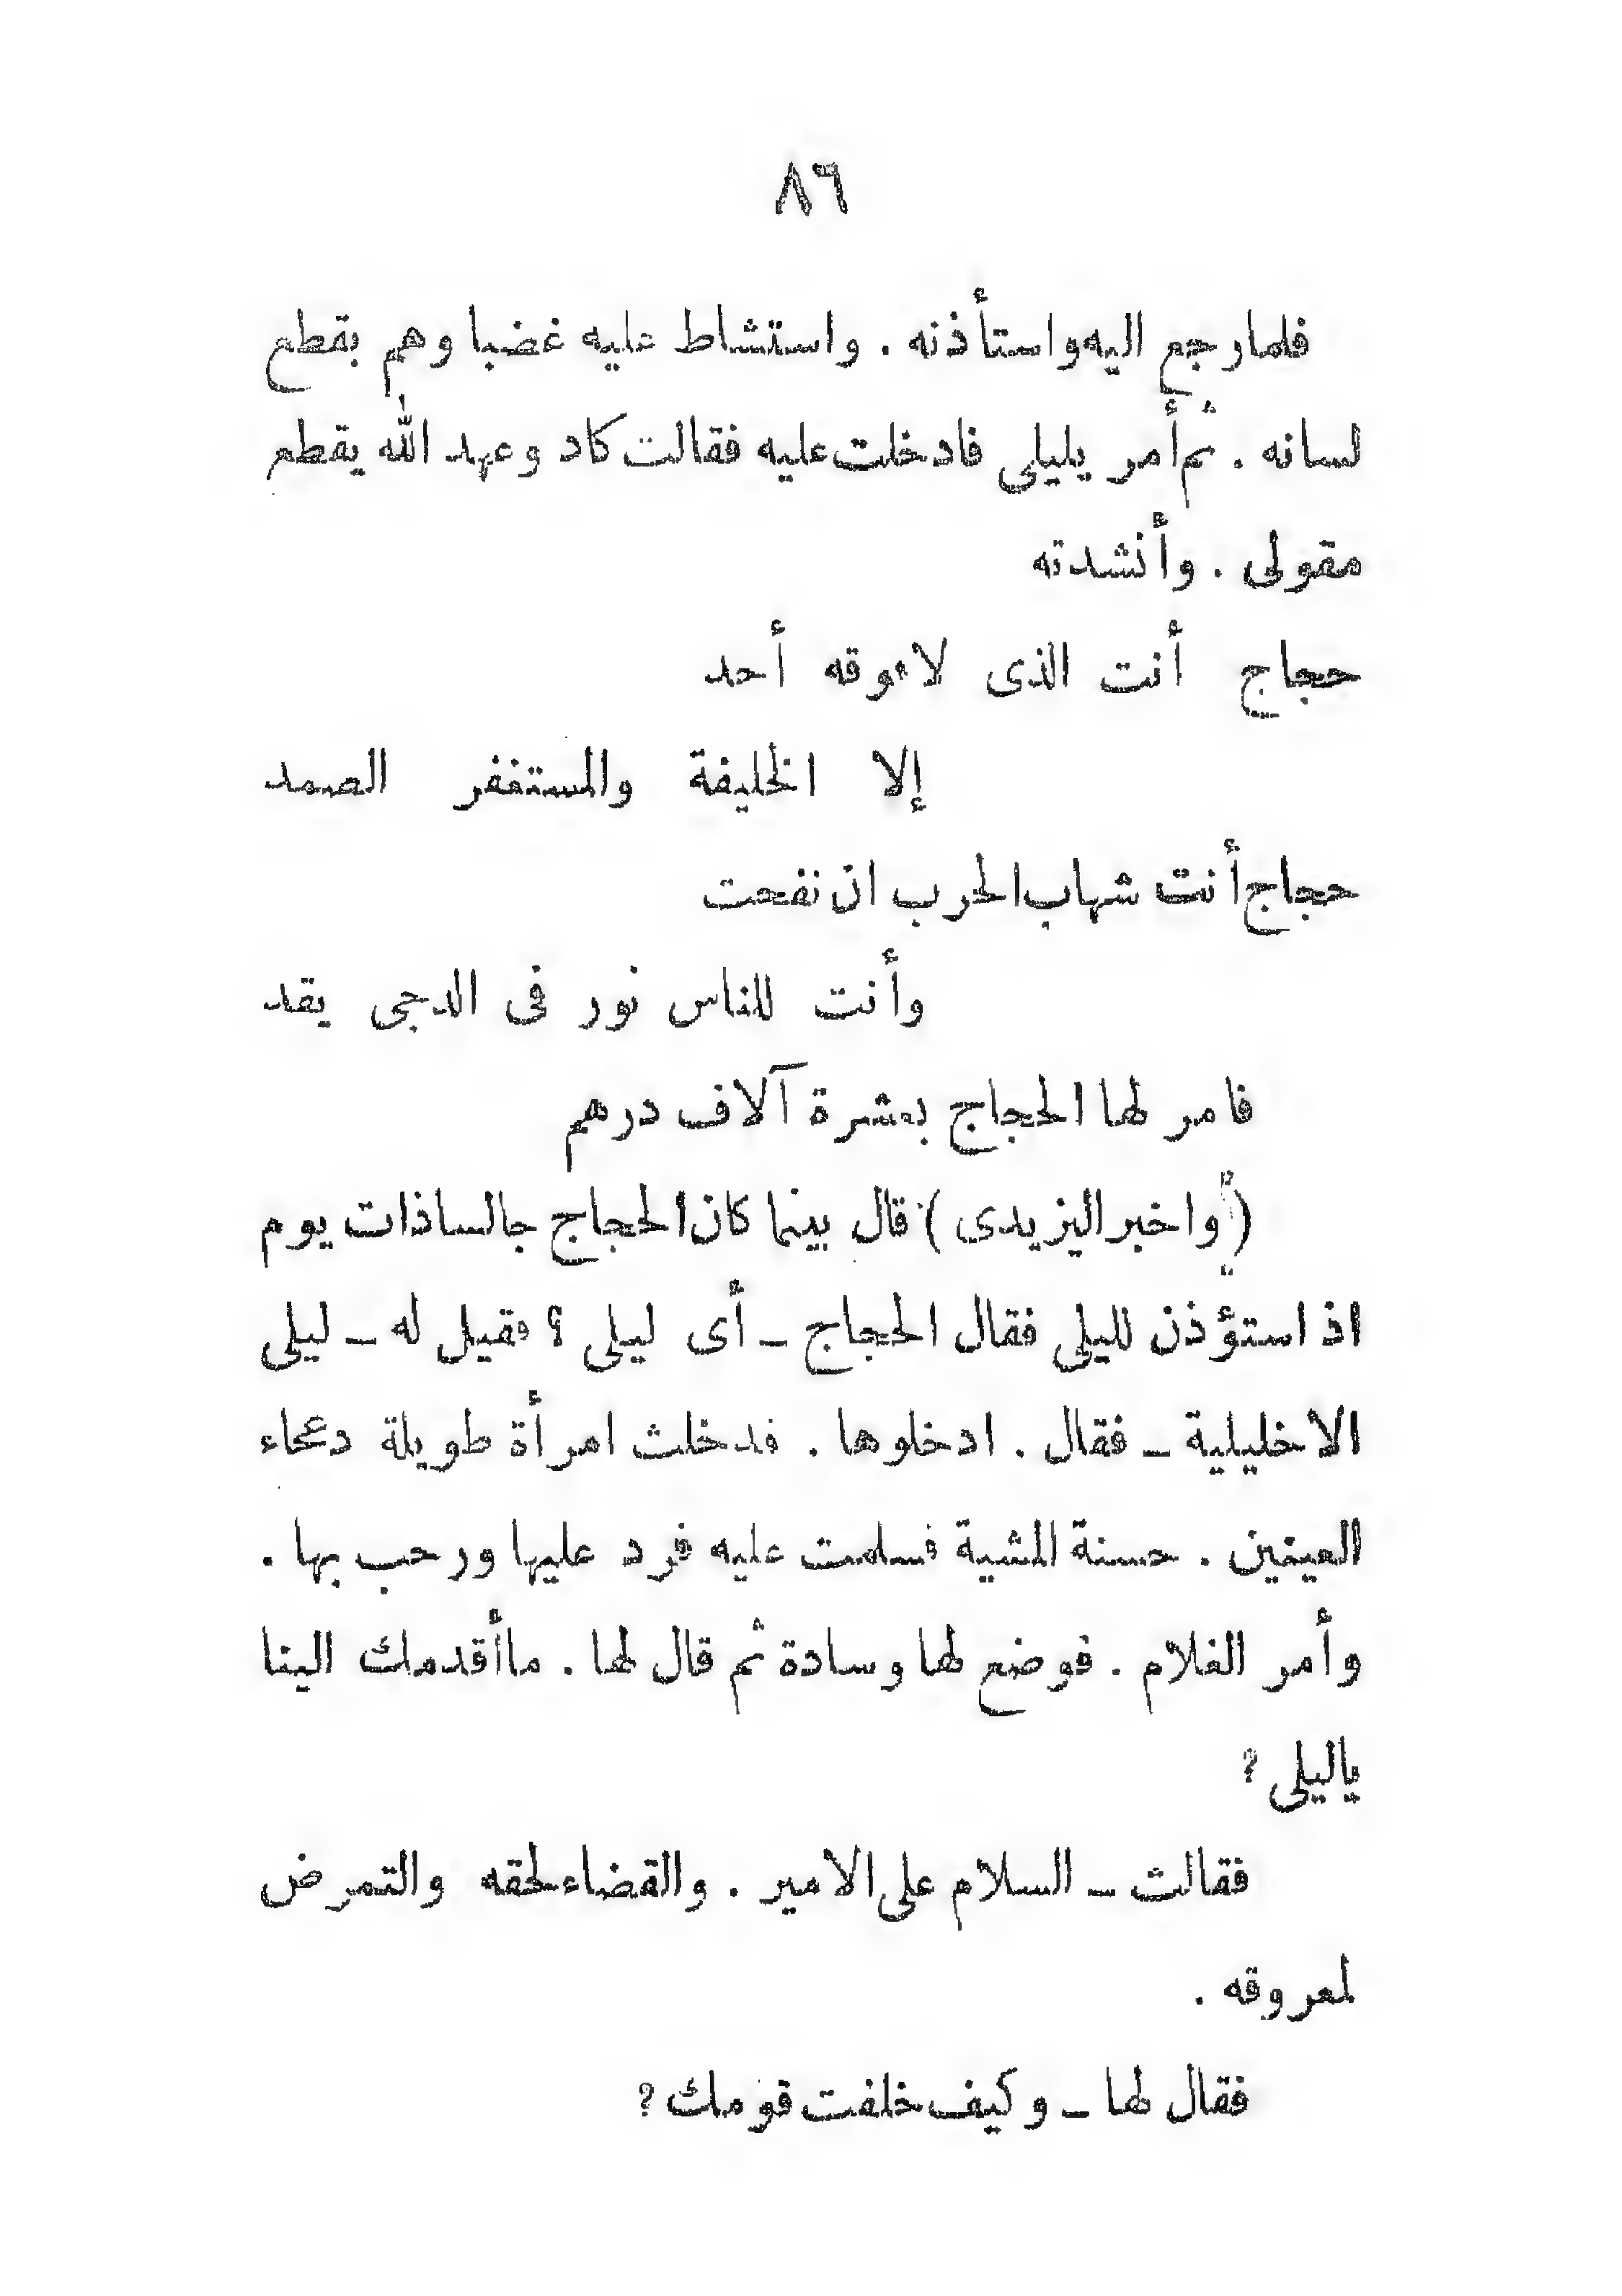 ٨٦
فلما رجع اليه واستأذنه . واستشاط عليه غضبا وهم بقطع
لسانه . ثم أمر بليلى فادخلت عليه فقالت كاد وعهد الله يقطع
مقولى . وأنشدته
حجاج أنت الذى لا فوقه أحد
إلا الخليفة والمستغفر الصمد
حجاج أنت شهاب الحرب ان نفحت
وأنت للناس نور فى الدجى يقد
فامر لها الحجاج بعشرة آلاف درهم
(واخبر اليزيدى) قال بينما كان الحجاج جالسا ذات يوم
اذ استؤذن لليلى فقال الحجاج ــ أى ليلى ؟ فقيل له ــ ليلى
الاخليلية ــ فقال . ادخلوها . فدخلت امرأة طويلة دعجاء
العينين . حسنة المشية فسلمت عليه فرد عليها ورحب بها .
وأمر الغلام . فوضع لها وسادة ثم قال لها . ما أقدمك الينا
ياليلى ؟
فقالت ــ السلام على الامير . والقضاء لحقه والتمرض
لمعروقه .
فقال لها ــ وكيف خلفت قومك ؟